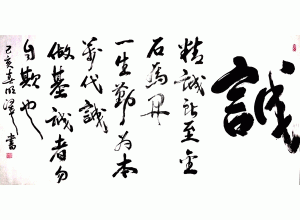 誠
精誠所至金
石為開
一生勤為本
萬代誠
做基誠者勿
自欺也
己亥春 書